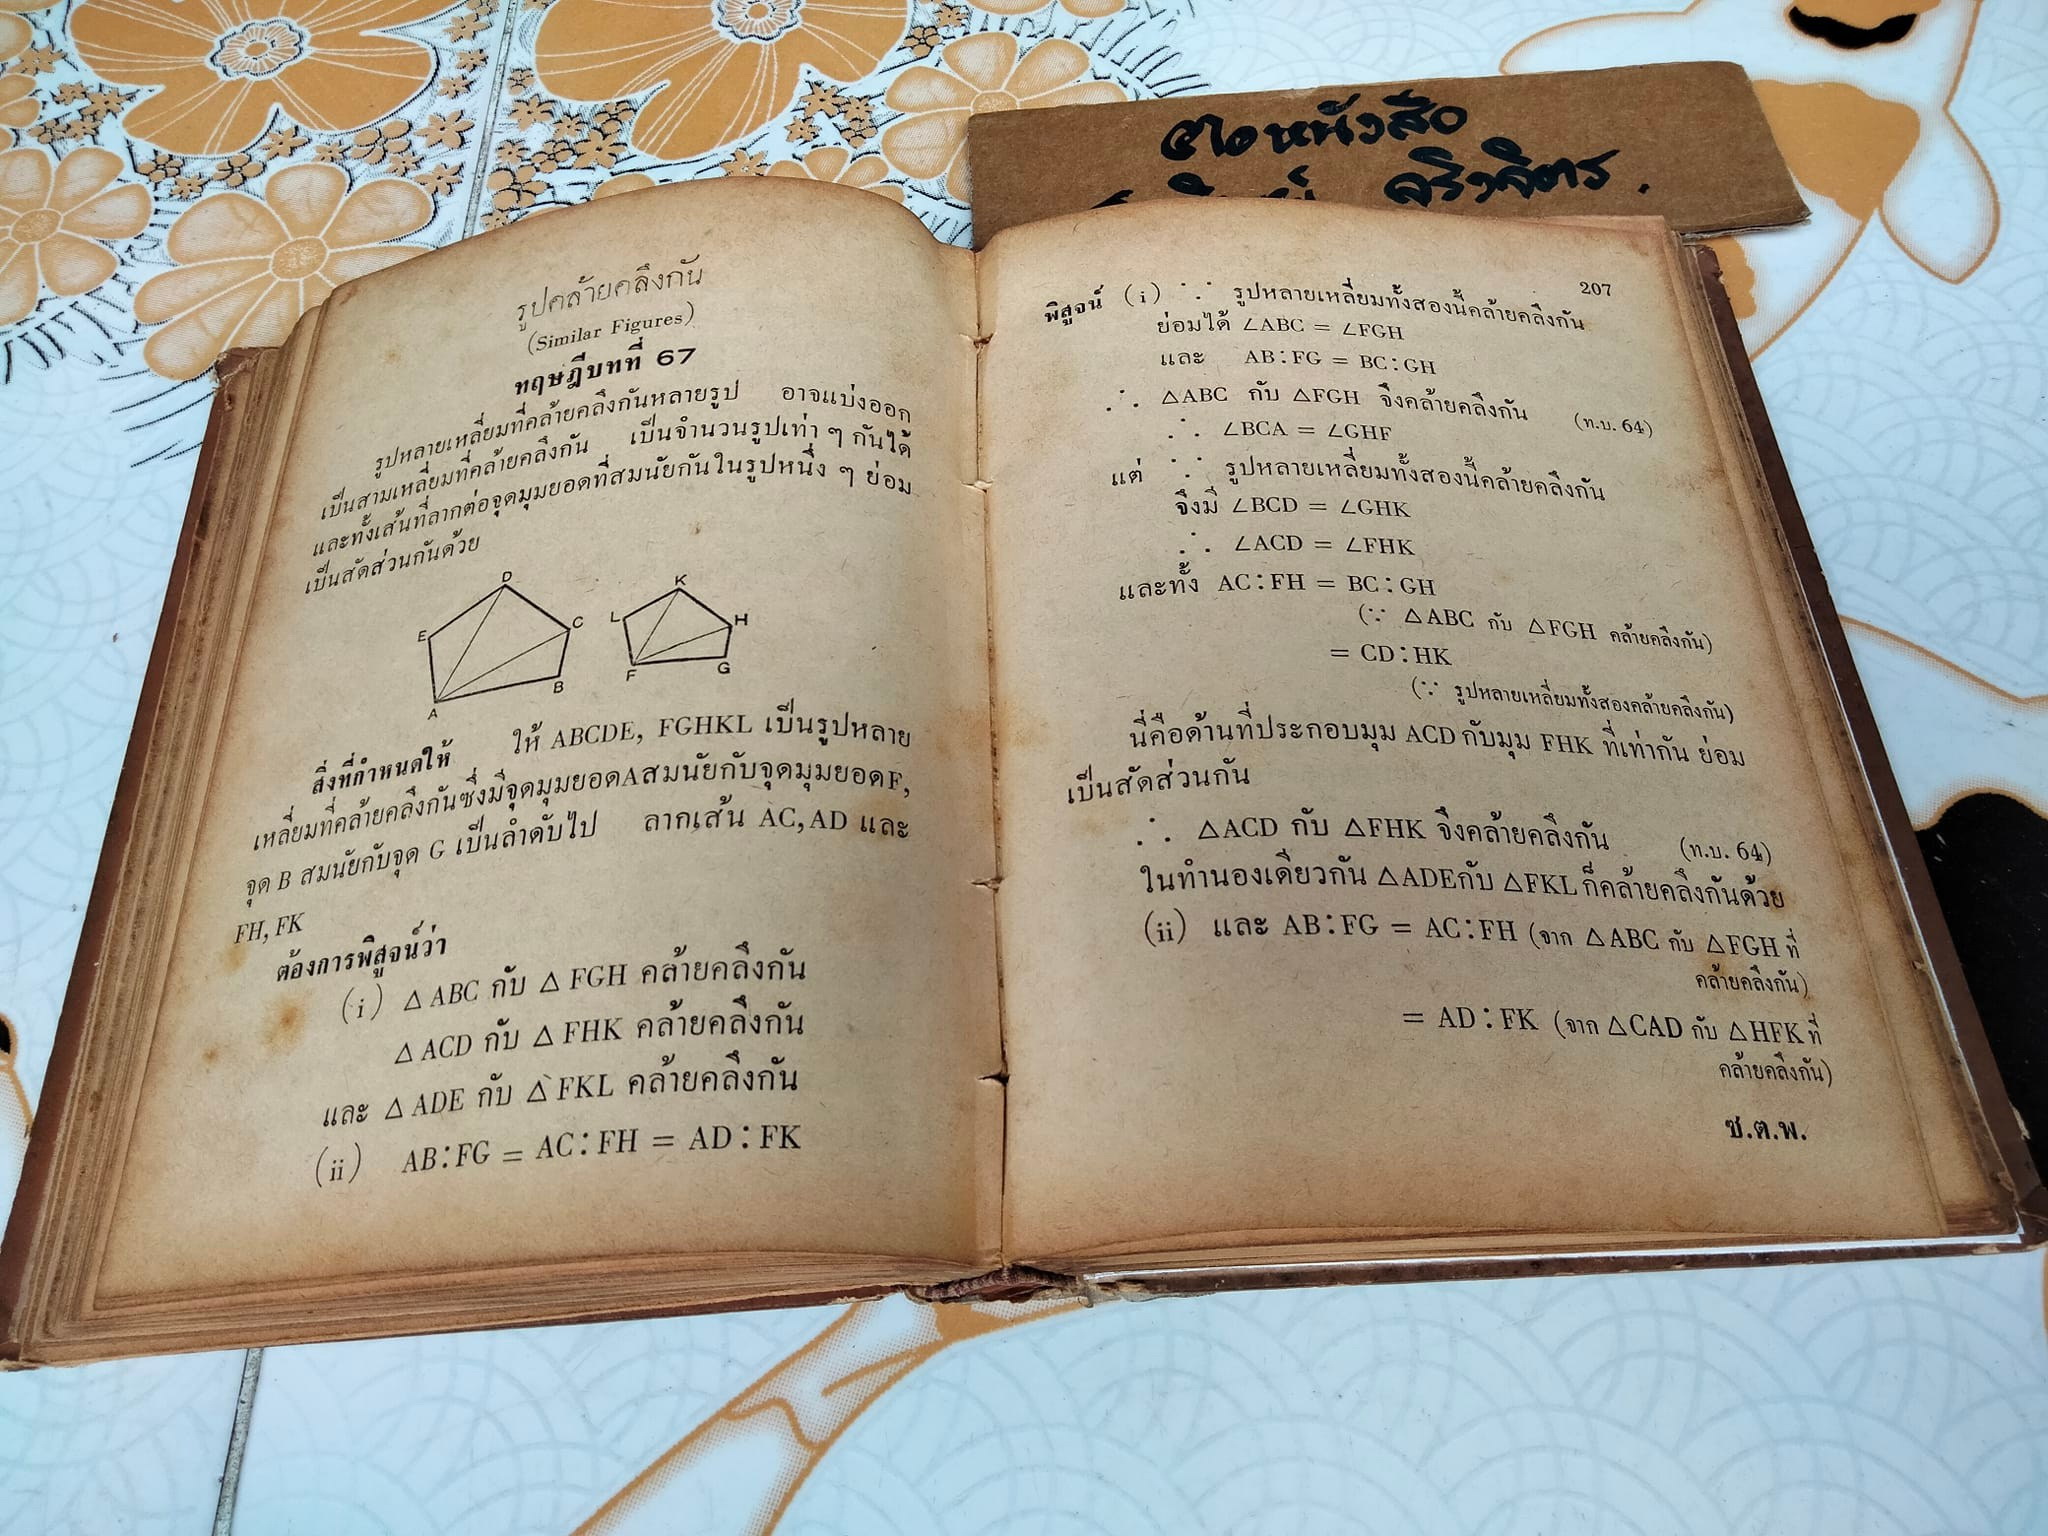 ต่อหนังสือ
รูปคล้ายคลึงกัน
(Similar Figures)
ทฤษฎีบทที่ 67
รูปหลายเหลี่ยมที่คล้ายคลึงกันหลายรูป อาจแบ่งออก
เป็นสามเหลี่ยมที่คล้ายคลึงกัน เป็นจำนวนรูปเท่า ๆ กันได้
และทั้งเส้นที่ลากต่อจุดมุมยอดที่สมนัยกันในรูปหนึ่ง ๆ ย่อม
เป็นสัดส่วนกันด้วย
D
E
C
B
A
K
L
H
G
F
สิ่งที่กำหนดให้ ให้ ABCDE, FGHKL เป็นรูปหลาย
เหลี่ยมที่คล้ายคลึงกันซึ่งมีจุดมุมยอดAสมนัยกับจุดมุมยอดF,
จุด B สมนัยกับจุด G เป็นลำดับไป ลากเส้น AC, AD และ
FH, FK
ต้องการพิสูจน์ว่า
(i) △ ABC กับ △ FGH คล้ายคลึงกัน
△ ACD กับ △ FHK คล้ายคลึงกัน
และ △ ADE กับ △ FKL คล้ายคลึงกัน
(ii) AB:FG = AC:FH = AD:FK
207
พิสูจน์ (i) ∵ รูปหลายเหลี่ยมทั้งสองนี้คล้ายคลึงกัน
ย่อมได้ ∠ABC = ∠FGH
และ AB:FG = BC:GH
∴ △ABC กับ △FGH จึงคล้ายคลึงกัน (ท.บ. 64)
∴ ∠BCA = ∠GHF
แต่ ∵ รูปหลายเหลี่ยมทั้งสองนี้คล้ายคลึงกัน
จึงมี ∠BCD = ∠GHK
∴ ∠ACD = ∠FHK
และทั้ง AC:FH = BC:GH
(∵ △ABC กับ △FGH คล้ายคลึงกัน)
= CD:HK
(∵ รูปหลายเหลี่ยมทั้งสองคล้ายคลึงกัน)
นี่คือด้านที่ประกอบมุม ACD กับมุม FHK ที่เท่ากัน ย่อม
เป็นสัดส่วนกัน
∴ △ACD กับ △FHK จึงคล้ายคลึงกัน (ท.บ. 64)
ในทำนองเดียวกัน △ADEกับ △FKL ก็คล้ายคลึงกันด้วย
(ii) และ AB:FG = AC:FH (จาก △ABC กับ △FGH ที่
คล้ายคลึงกัน)
= AD:FK (จาก △CAD กับ △HFK ที่
คล้ายคลึงกัน)
ซ.ต.พ.